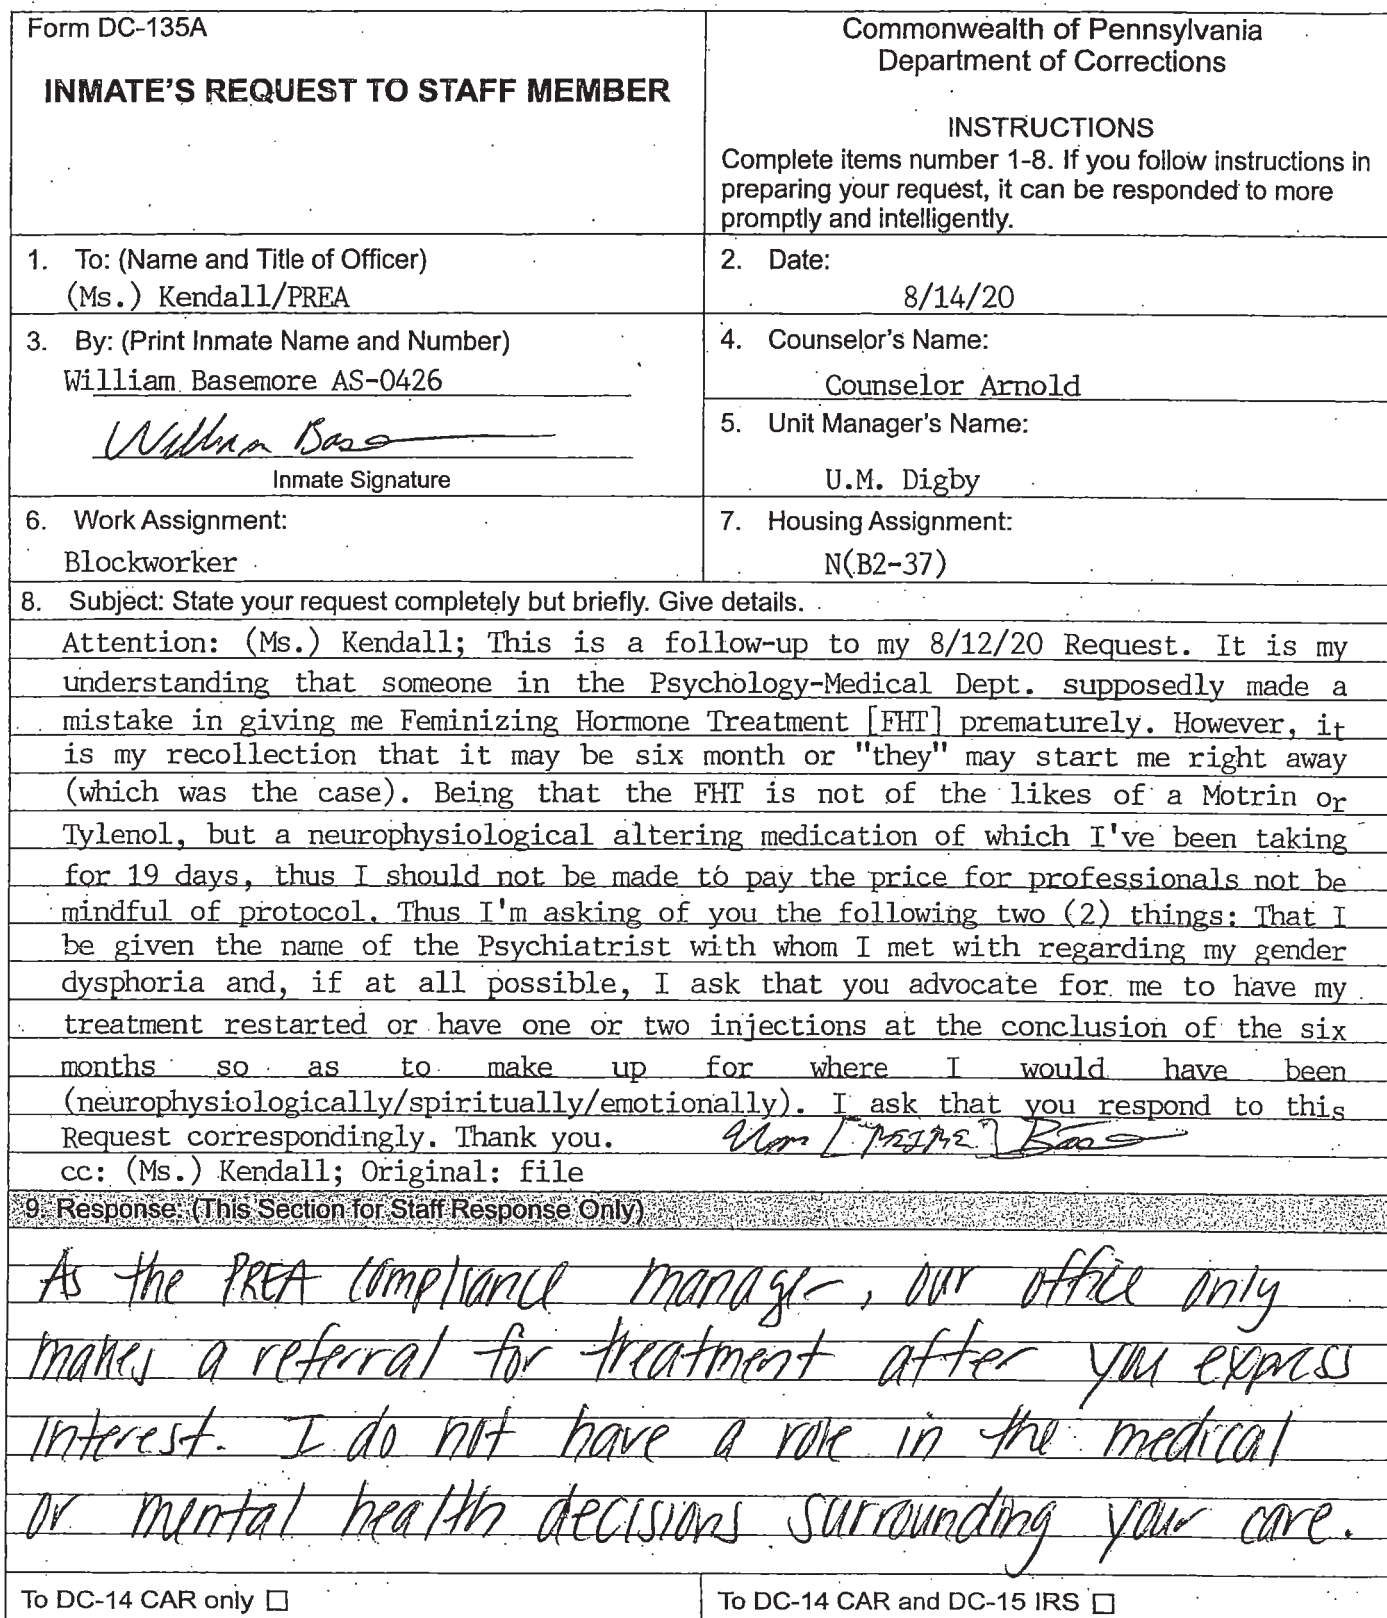 Form DC-135A
INMATE'S REQUEST TO STAFF MEMBER
Commonwealth of Pennsylvania
Department of Corrections
INSTRUCTIONS
Complete items number 1-8. If you follow instructions in
preparing your request, it can be responded to more
promptly and intelligently.
1. To: (Name and Title of Officer)
(Ms.) Kendall/PREA
2. Date:
8/14/20
3. By: (Print Inmate Name and Number)
William Basemore AS-0426
William Bas
Inmate Signature
4. Counselor's Name:
Counselor Arnold
5. Unit Manager's Name:
U.M. Digby
6. Work Assignment:
Blockworker
7. Housing Assignment:
N(B2-37)
8. Subject: State your request completely but briefly. Give details.
Attention: (Ms.) Kendall; This is a follow-up to my 8/12/20 Request. It is my
understanding that someone in the Psychology-Medical Dept. supposedly made a
mistake in giving me Feminizing Hormone Treatment [FHT] prematurely. However, it
is my recollection that it may be six month or "they" may start me right away
(which was the case). Being that the FHT is not of the likes of a Motrin or
Tylenol, but a neurophysiological altering medication of which I've been taking
for 19 days, thus I should not be made to pay the price for professionals not be
mindful of protocol. Thus I'm asking of you the following two (2) things: That I
be given the name of the Psychiatrist with whom I met with regarding my gender
dysphoria and, if at all possible, I ask that you advocate for me to have my
treatment restarted or have one or two injections at the conclusion of the six
months so as to make up for where I would have been
(neurophysiologically/spiritually/emotionally). I ask that you respond to this
Request correspondingly. Thank you.
cc: (Ms.) Kendall; Original: file
9. Response: (This Section for Staff Response Only)
As the PREA compliance manager, our office only
makes a referral for treatment after you express
interest. I do not have a role in the medical
or mental health decisions surrounding your care.
To DC-14 CAR only ☐
To DC-14 CAR and DC-15 IRS ☐